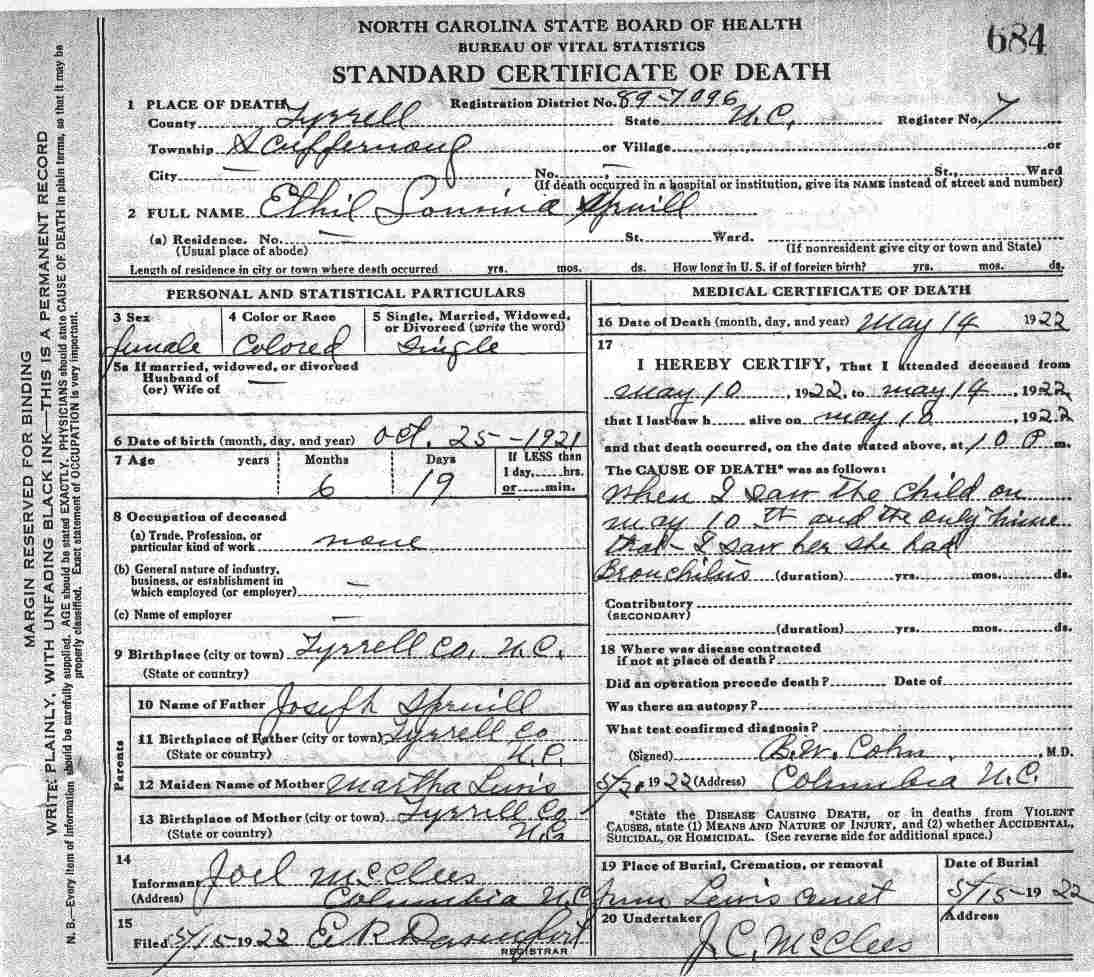 NORTH CAROLINA STATE BOARD OF HEALTH
BUREAU OF VITAL STATISTICS
684
STANDARD CERTIFICATE OF DEATH
1 PLACE OF DEATH Registration District No. 89-7096
County Tyrrell State N.C. Register No. 7
Township Scuppernong or Village or
City No. St., Ward
(If death occurred in a hospital or institution, give its NAME instead of street and number)
2 FULL NAME Ethil Spruill
(a) Residence. No. St. Ward.
(Usual place of abode) (If nonresident give city or town and State)
Length of residence in city or town where death occurred yrs. mos. ds. How long in U. S. if of foreign birth? yrs. mos. ds.
MARGIN RESERVED FOR BINDING
WRITE PLAINLY, WITH UNFADING BLACK INK—THIS IS A PERMANENT RECORD
N. B.—Every item of Information should be carefully supplied. AGE should be stated EXACTLY. PHYSICIANS should state CAUSE OF DEATH in plain terms, so that it may be
properly classified. Exact statement of OCCUPATION is very important.
PERSONAL AND STATISTICAL PARTICULARS
3 Sex
female
4 Color or Race
Colored
5 Single, Married, Widowed,
or Divorced (write the word)
Single
5a If married, widowed, or divorced
Husband of
(or) Wife of
6 Date of birth (month, day, and year) Oct. 25-1921
7 Age years Months Days If LESS than
1 day, hrs.
or min.
6 19
8 Occupation of deceased
(a) Trade, Profession, or
particular kind of work none
(b) General nature of industry,
business, or establishment in
which employed (or employer)
(c) Name of employer
9 Birthplace (city or town) Tyrrell Co. N.C.
(State or country)
Parents
10 Name of Father Joseph Spruill
11 Birthplace of Father (city or town) Tyrrell Co
(State or country) N.C.
12 Maiden Name of Mother Martha Lewis
13 Birthplace of Mother (city or town) Tyrrell Co
(State or country) N.C
14
Informant Joel McClees
(Address) Columbia N.C
15
Filed 5/15 1922 E.R.
REGISTRAR
MEDICAL CERTIFICATE OF DEATH
16 Date of Death (month, day, and year) May 14 1922
17
I HEREBY CERTIFY, That I attended deceased from
May 10, 1922, to May 14, 1922
that I last saw h alive on May 10, 1922
and that death occurred, on the date stated above, at 10 P. m.
The CAUSE OF DEATH* was as follows:
When I saw the child on
May 10th and the only time
that I saw her she had
Bronchitis (duration) yrs. mos. ds.
Contributory
(SECONDARY)
(duration) yrs. mos. ds.
18 Where was disease contracted
if not at place of death?
Did an operation precede death? Date of
Was there an autopsy?
What test confirmed diagnosis?
(Signed) B.W. Cohn, M.D.
1922 (Address) Columbia N.C.
*State the DISEASE CAUSING DEATH, or in deaths from VIOLENT
CAUSES, state (1) MEANS AND NATURE OF INJURY, and (2) whether ACCIDENTAL,
SUICIDAL, OR HOMICIDAL. (See reverse side for additional space.)
19 Place of Burial, Cremation, or removal
Lewis cemet
Date of Burial
5/15-1922
20 Undertaker
J.C. McClees
Address